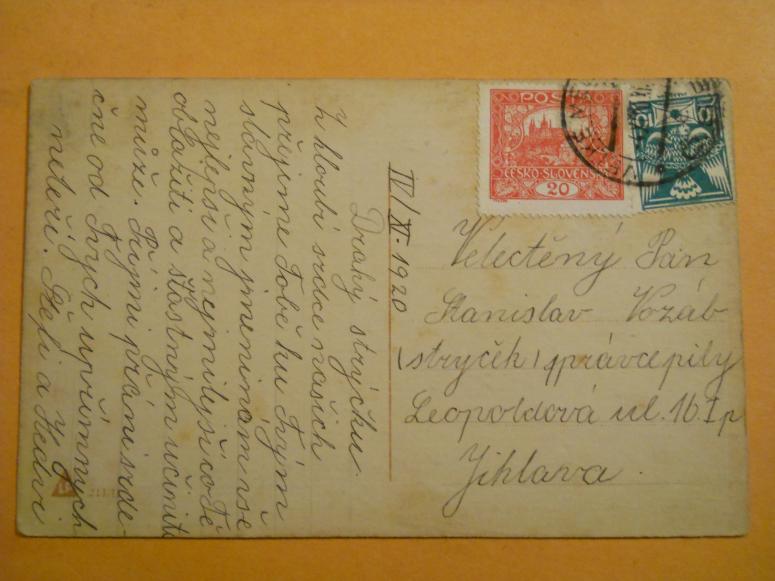 IV/XI. 1920
Drahý strýčku
Z hloubi srdce našich
přejeme Tobě ku Tvým
slavným jmeninam vše
nejlepší a nejmilejší co Tě
oblažiti a šťastným učiniti
může. Přijmi přání srde-
čné od Tvých upřímných
neteří. Štefi a Hedvi
POŠTA
ČESKO-SLOVENSKÁ
20
Velectěný Pán
Stanislav Vozáb
(strýček) správce pily
Leopoldová ul. 16. I p
Jihlava.